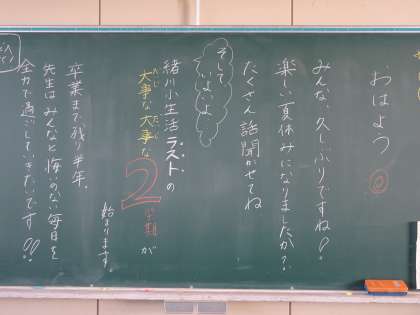 おはよう
みんな、久しぶりですね!
楽しい夏休みになりましたか?
たくさん話聞かせてね
そして
いよいよ
緒川小生活ラストの
大事な大事な
2学期が
始まります。
卒業まで残り半年、
先生はみんなと悔いのない毎日を
全力で過ごしていきたいです!!